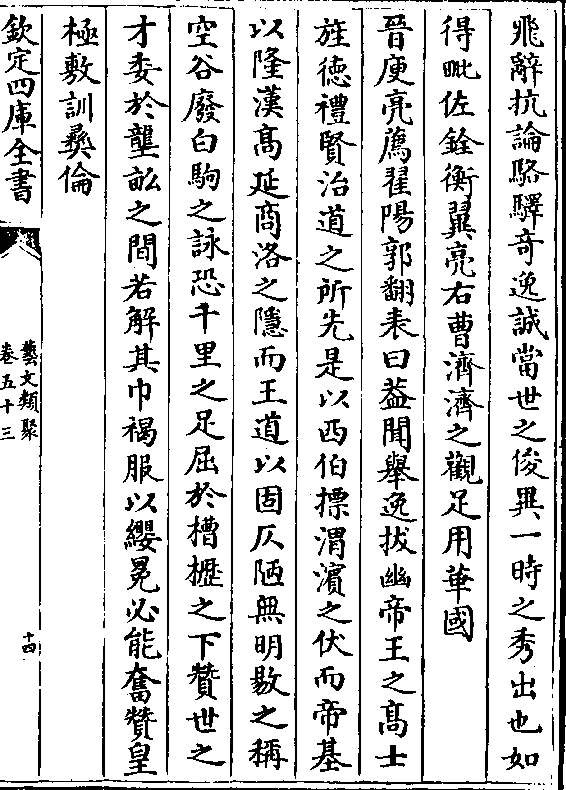 飛辭抗論駱驛奇逸誠當世之俊異一時之秀出也如
得毗佐銓衡翼亮右曹濟濟之觀足用華國
晉庾亮薦翟陽郭翻表曰葢聞舉逸拔幽帝王之髙士
旌徳禮賢治道之所先是以西伯摽渭濱之伏而帝基
以隆漢髙延商洛之隱而王道以固仄陋無明敭之稱
空谷廢白駒之詠恐千里之足屈於槽櫪之下贊世之
才委於壟畝之間若解其巾褐服以纓冕必能奮贊皇
極敷訓彛倫
欽定四庫全書
藝文類聚
卷五十三
十四